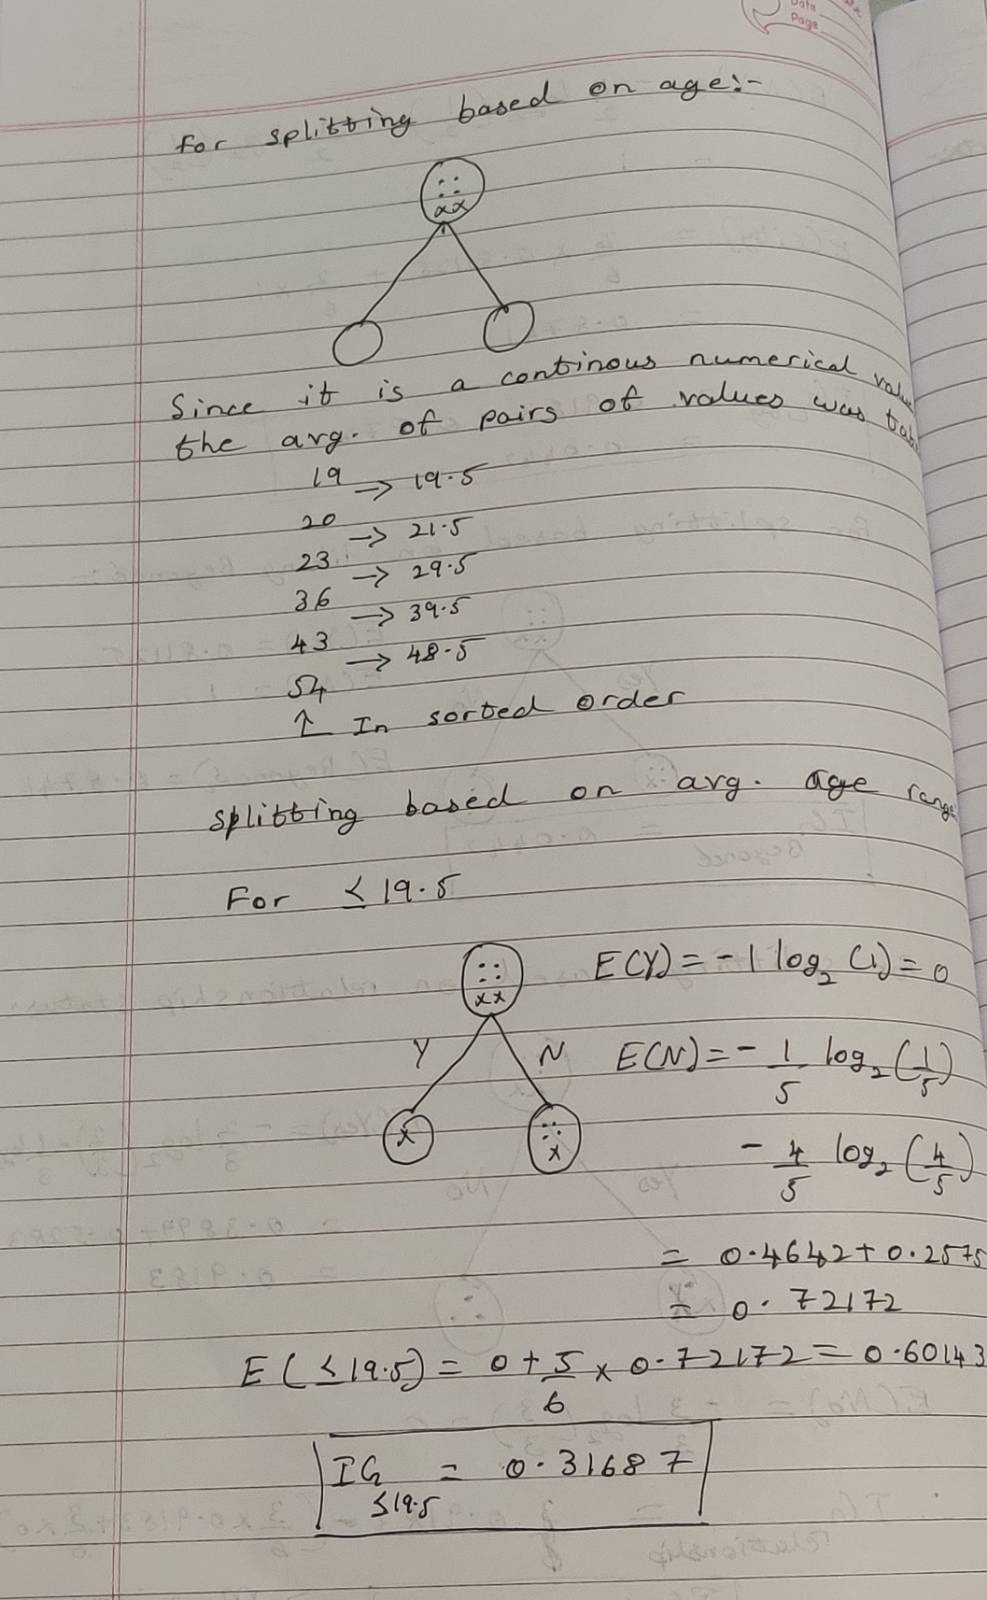 Date
Page
for splitting based on age:-
:: xx
Since it is a continous numerical
the avg. of pairs of values was
19 → 19.5
20 → 21.5
23 → 29.5
36 → 39.5
43 → 48.5
54
↑ In sorted order
splitting based on avg. age range
For ≤ 19.5
:: xx
E(Y) = -1 log₂ (1) = 0
Y N
E(N) = - 1/5 log₂ (1/5)
x
:: x
- 4/5 log₂ (4/5)
= 0.4642 + 0.2575
= 0.72172
E (≤ 19.5) = 0 + 5/6 × 0.72172 = 0.60143
IG ≤19.5 = 0.31687